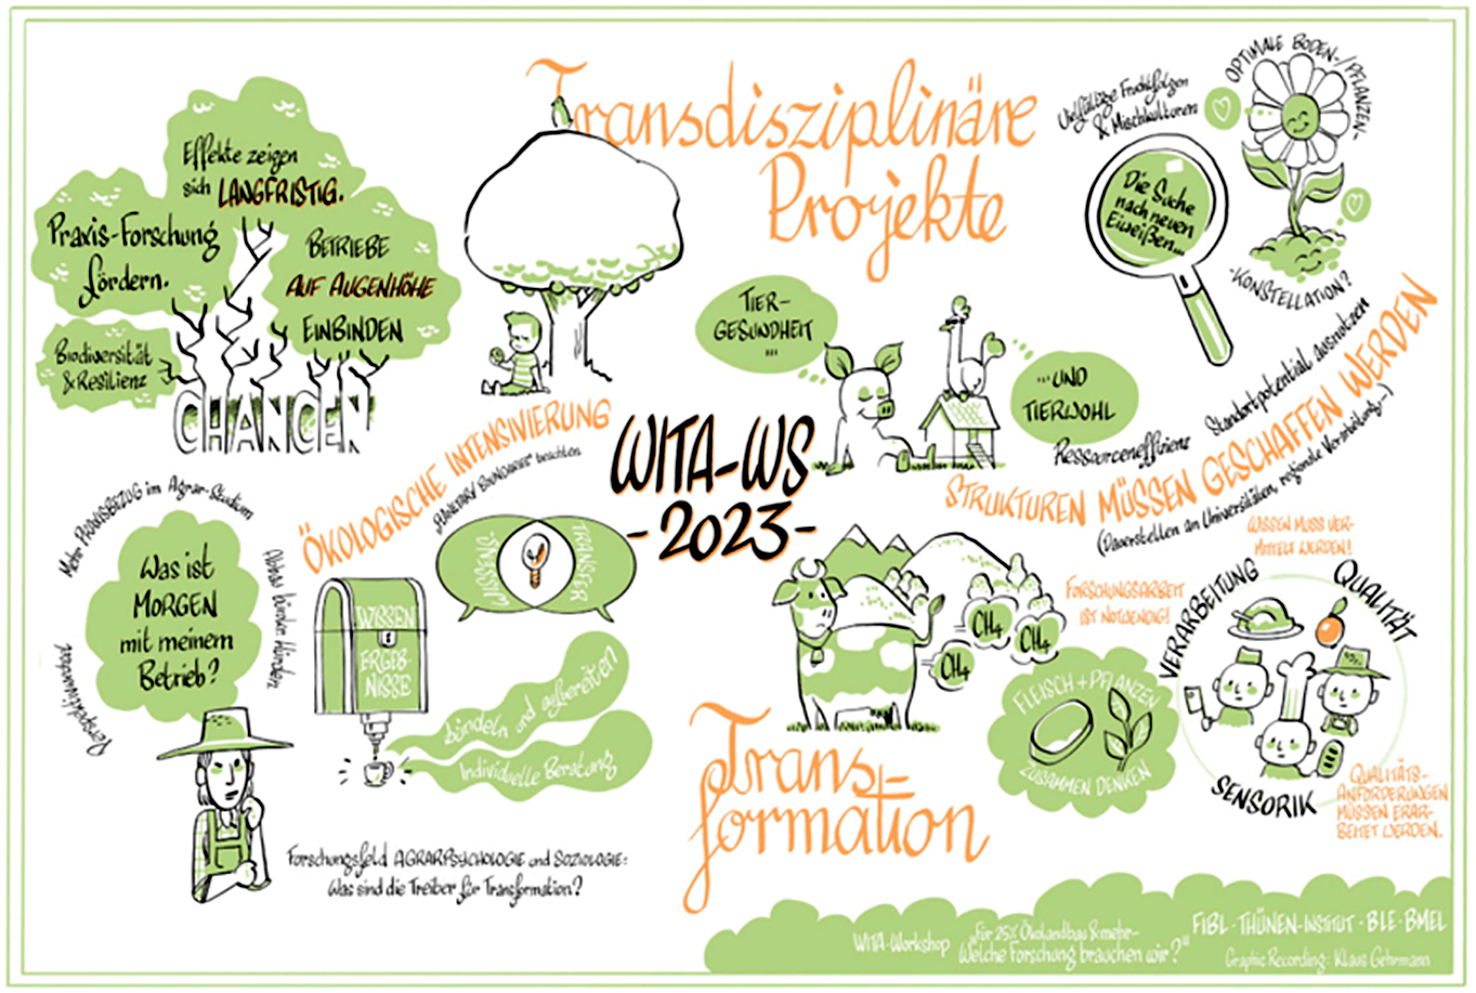 Transdisziplinäre
Projekte
Effekte zeigen
sich LANGFRISTIG.
Praxis-Forschung
fördern.
BETRIEBE
AUF AUGENHÖHE
EINBINDEN
Biodiversität
& Resilienz
CHANCEN
Vielfältige Fruchtfolgen
& Mischkulturen
Die Suche
nach neuen
Eiweißen...
OPTIMALE BODEN-/PFLANZEN-
-KONSTELLATION?
TIER-
GESUNDHEIT
...
...UND
TIERWOHL
Ressourceneffizienz
Standortpotential ausnutzen
STRUKTUREN MÜSSEN GESCHAFFEN WERDEN
(Dauerstellen an Universitäten, regionale Verarbeitung,...)
WITA-WS
-2023-
ÖKOLOGISCHE INTENSIVIERUNG
"PLANETARY BOUNDARIES" beachten
Mehr PRAXISBEZUG im Agrar-Studium
Was ist
MORGEN
mit meinem
Betrieb?
Abbau hürden
WISSENS-
TRANSFER
WISSEN
ERGEB-
NISSE
bündeln und aufbereiten
Individuelle Beratung
Forschungsfeld AGRARPSYCHOLOGIE und SOZIOLOGIE:
Was sind die Treiber für Transformation?
CH4
CH4
CH4
Trans-
formation
FORSCHUNGSARBEIT
IST NOTWENDIG!
WISSEN MUSS VER-
MITTELT WERDEN!
VERARBEITUNG
QUALITÄT
SENSORIK
FLEISCH + PFLANZEN
ZUSAMMEN DENKEN
QUALITÄTS-
ANFORDERUNGEN
MÜSSEN ERAR-
BEITET WERDEN.
WITA-Workshop „Für 25% Ökolandbau & mehr-
Welche Forschung brauchen wir?"
FIBL - THÜNEN-INSTITUT - BLE - BMEL
Graphic Recording: Klaus Gehrmann